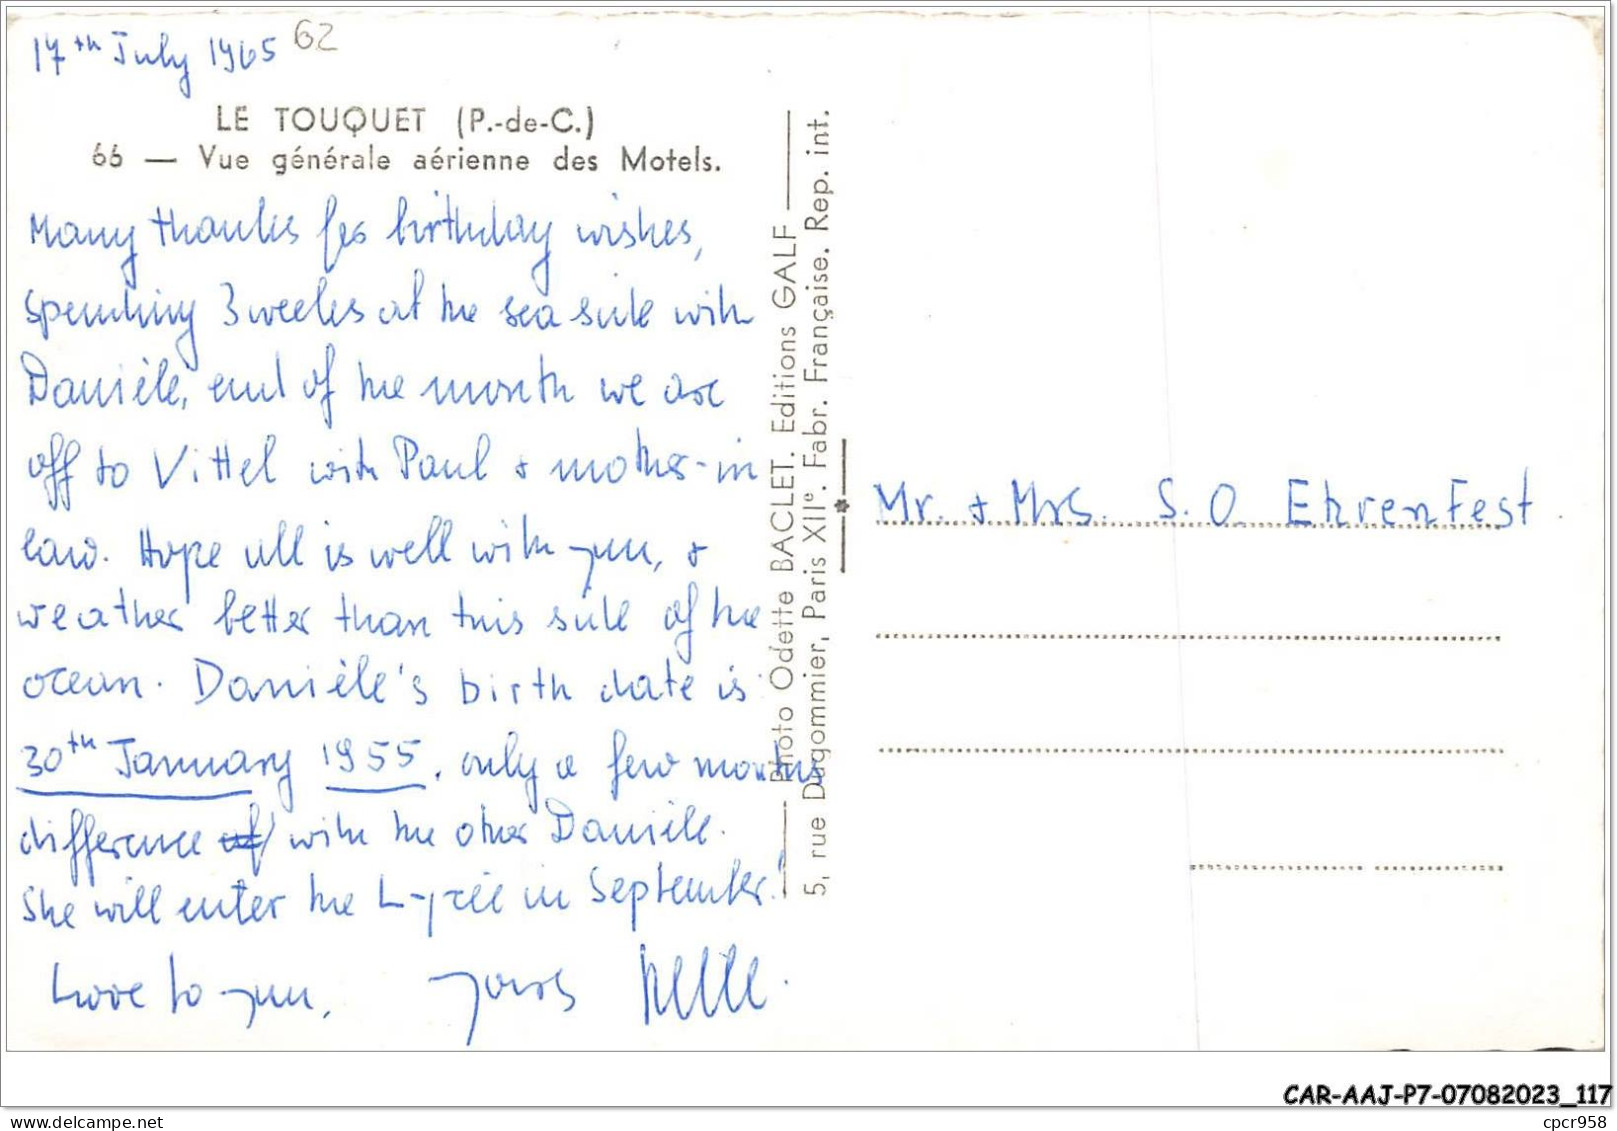 17th July 1965
62
LE TOUQUET (P.-de-C.)
66 — Vue générale aérienne des Motels.
Many thanks for birthday wishes,
spending 3 weeks at the sea side with
Danièle, end of the month we are
off to Vittel with Paul + mother-in
law. Hope all is well with you, +
weather better than this side of the
ocean. Danièle's birth date is
30th January 1955, only a few months
difference of with the other Danièle.
She will enter the Lycée in September.
Love to you, Yours
Photo Odette BACLET. Editions GALF
5, rue Dugommier, Paris XIIe. Fabr. Française. Rep. int.
Mr. + Mrs. S. O. Ehrenfest
CAR-AAJ-P7-07082023_117
delcampe.net
cpcr958